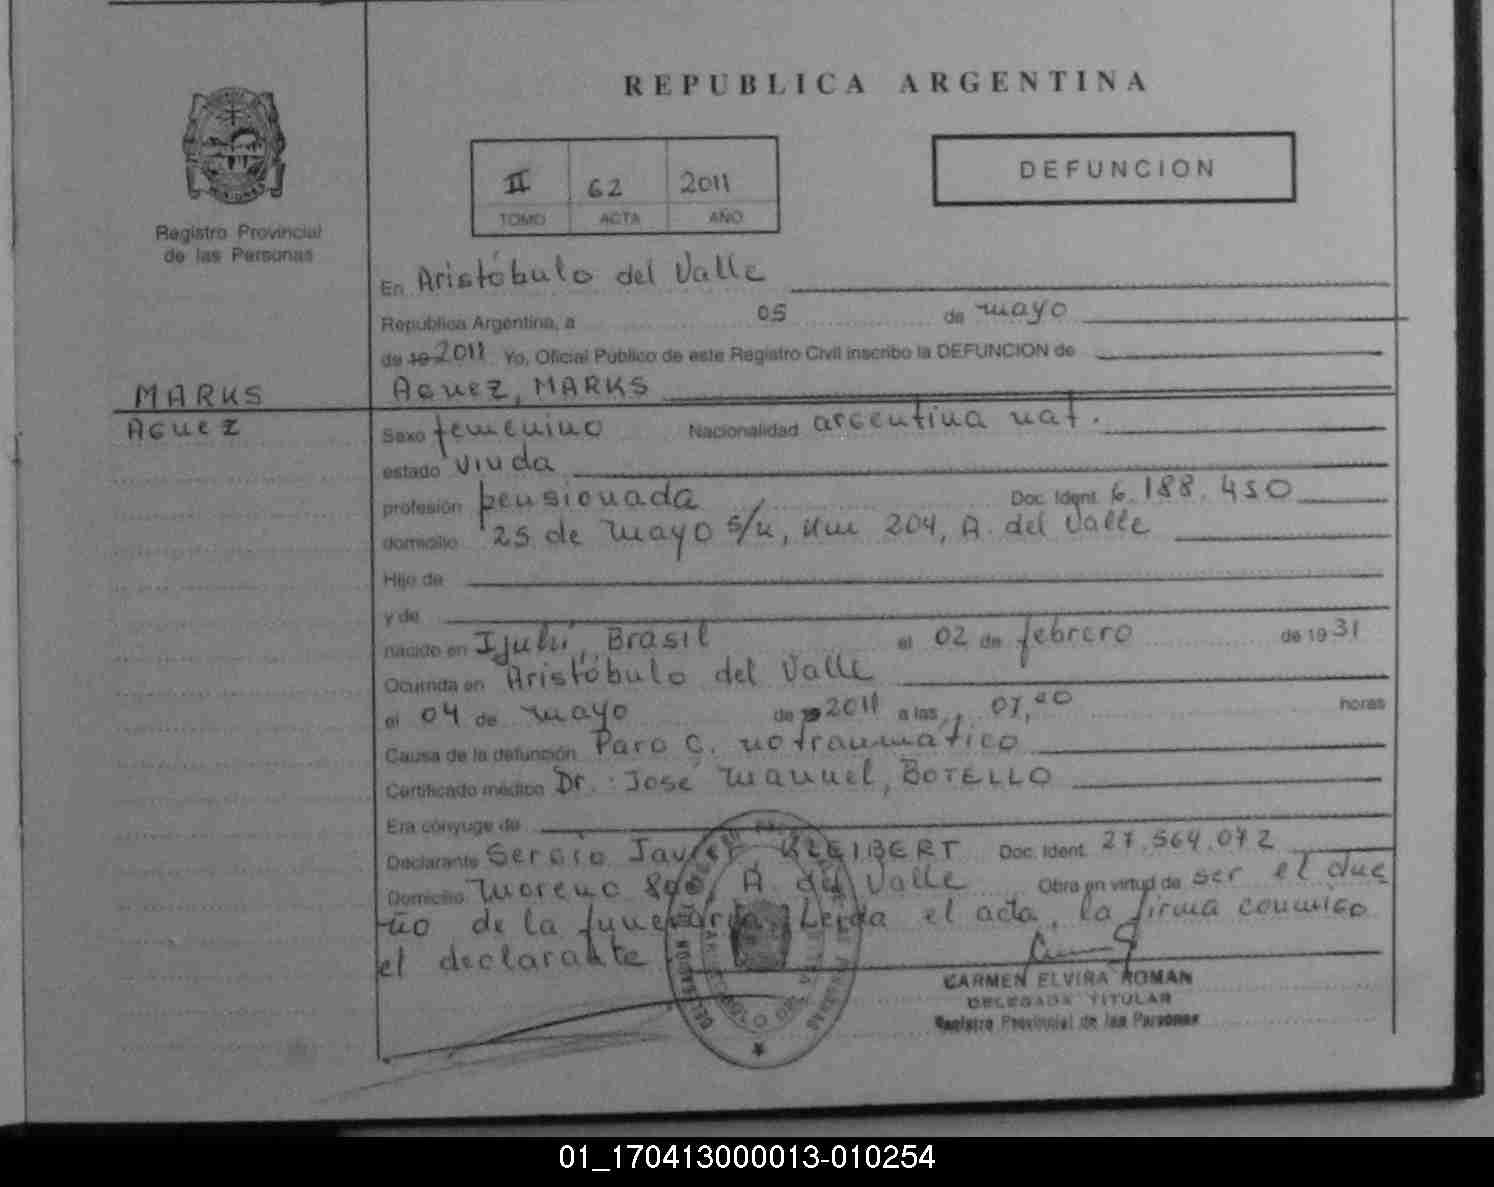 REPUBLICA ARGENTINA
II 62 2011
TOMO ACTA AÑO
DEFUNCION
Registro Provincial
de las Personas
En Aristóbulo del Valle
Republica Argentina, a 05 de mayo
de 19 2011 Yo, Oficial Público de este Registro Civil inscribo la DEFUNCION de
MARKS
Aguez, MARKS
Aguez
Sexo femenino Nacionalidad argentina nat.
estado viuda
profesión pensionada Doc. Ident. 6.188.450
domicilio 25 de mayo s/n, Km 204, A. del Valle
Hijo de
y de
nacido en Ijuhí, Brasil el 02 de febrero de 19 31
Ocurrida en Aristóbulo del Valle
el 04 de mayo de 2011 a las 07,00 horas
Causa de la defunción Paro C. no traumático
Certificado médico Dr. José Manuel, BOTELLO
Era cónyuge de
Declarante Sergio Javier KLEIBERT Doc. Ident. 27.564.072
Domicilio Moreno A. del Valle Obra en virtud de ser el due
ño de la funeraria. Leída el acta, la firma conmigo
el declarante
CARMEN ELVIRA ROMAN
DELEGADA TITULAR
Registro Provincial de las Personas
01_170413000013-010254